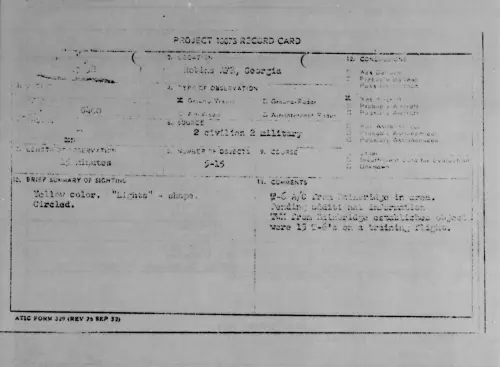 PROJECT 10073 RECORD CARD
2. LOCATION
Robins AFB, Georgia
12. CONCLUSIONS
Was Balloon
Probably Balloon
Possibly Balloon
4. TYPE OF OBSERVATION
X Ground-Visual
Ground-Radar
X Was Aircraft
Probably Aircraft
Possibly Aircraft
Air-Intercept Radar
6. SOURCE
2 civilian 2 military
Was Astronomical
Probably Astronomical
Possibly Astronomical
7. LENGTH OF OBSERVATION
8. NUMBER OF OBJECTS
9. COURSE
Other
Insufficient Data for Evaluation
Unknown
15 minutes
9-15
10. BRIEF SUMMARY OF SIGHTING
11. COMMENTS
Yellow color. "Lights" - shape.
Circled.
T-6 A/C from Bainbridge in area.
Pending additional information
TWX from Bainbridge establishes object
were 15 T-6's on a training flight.
ATIC FORM 329 (REV 26 SEP 52)